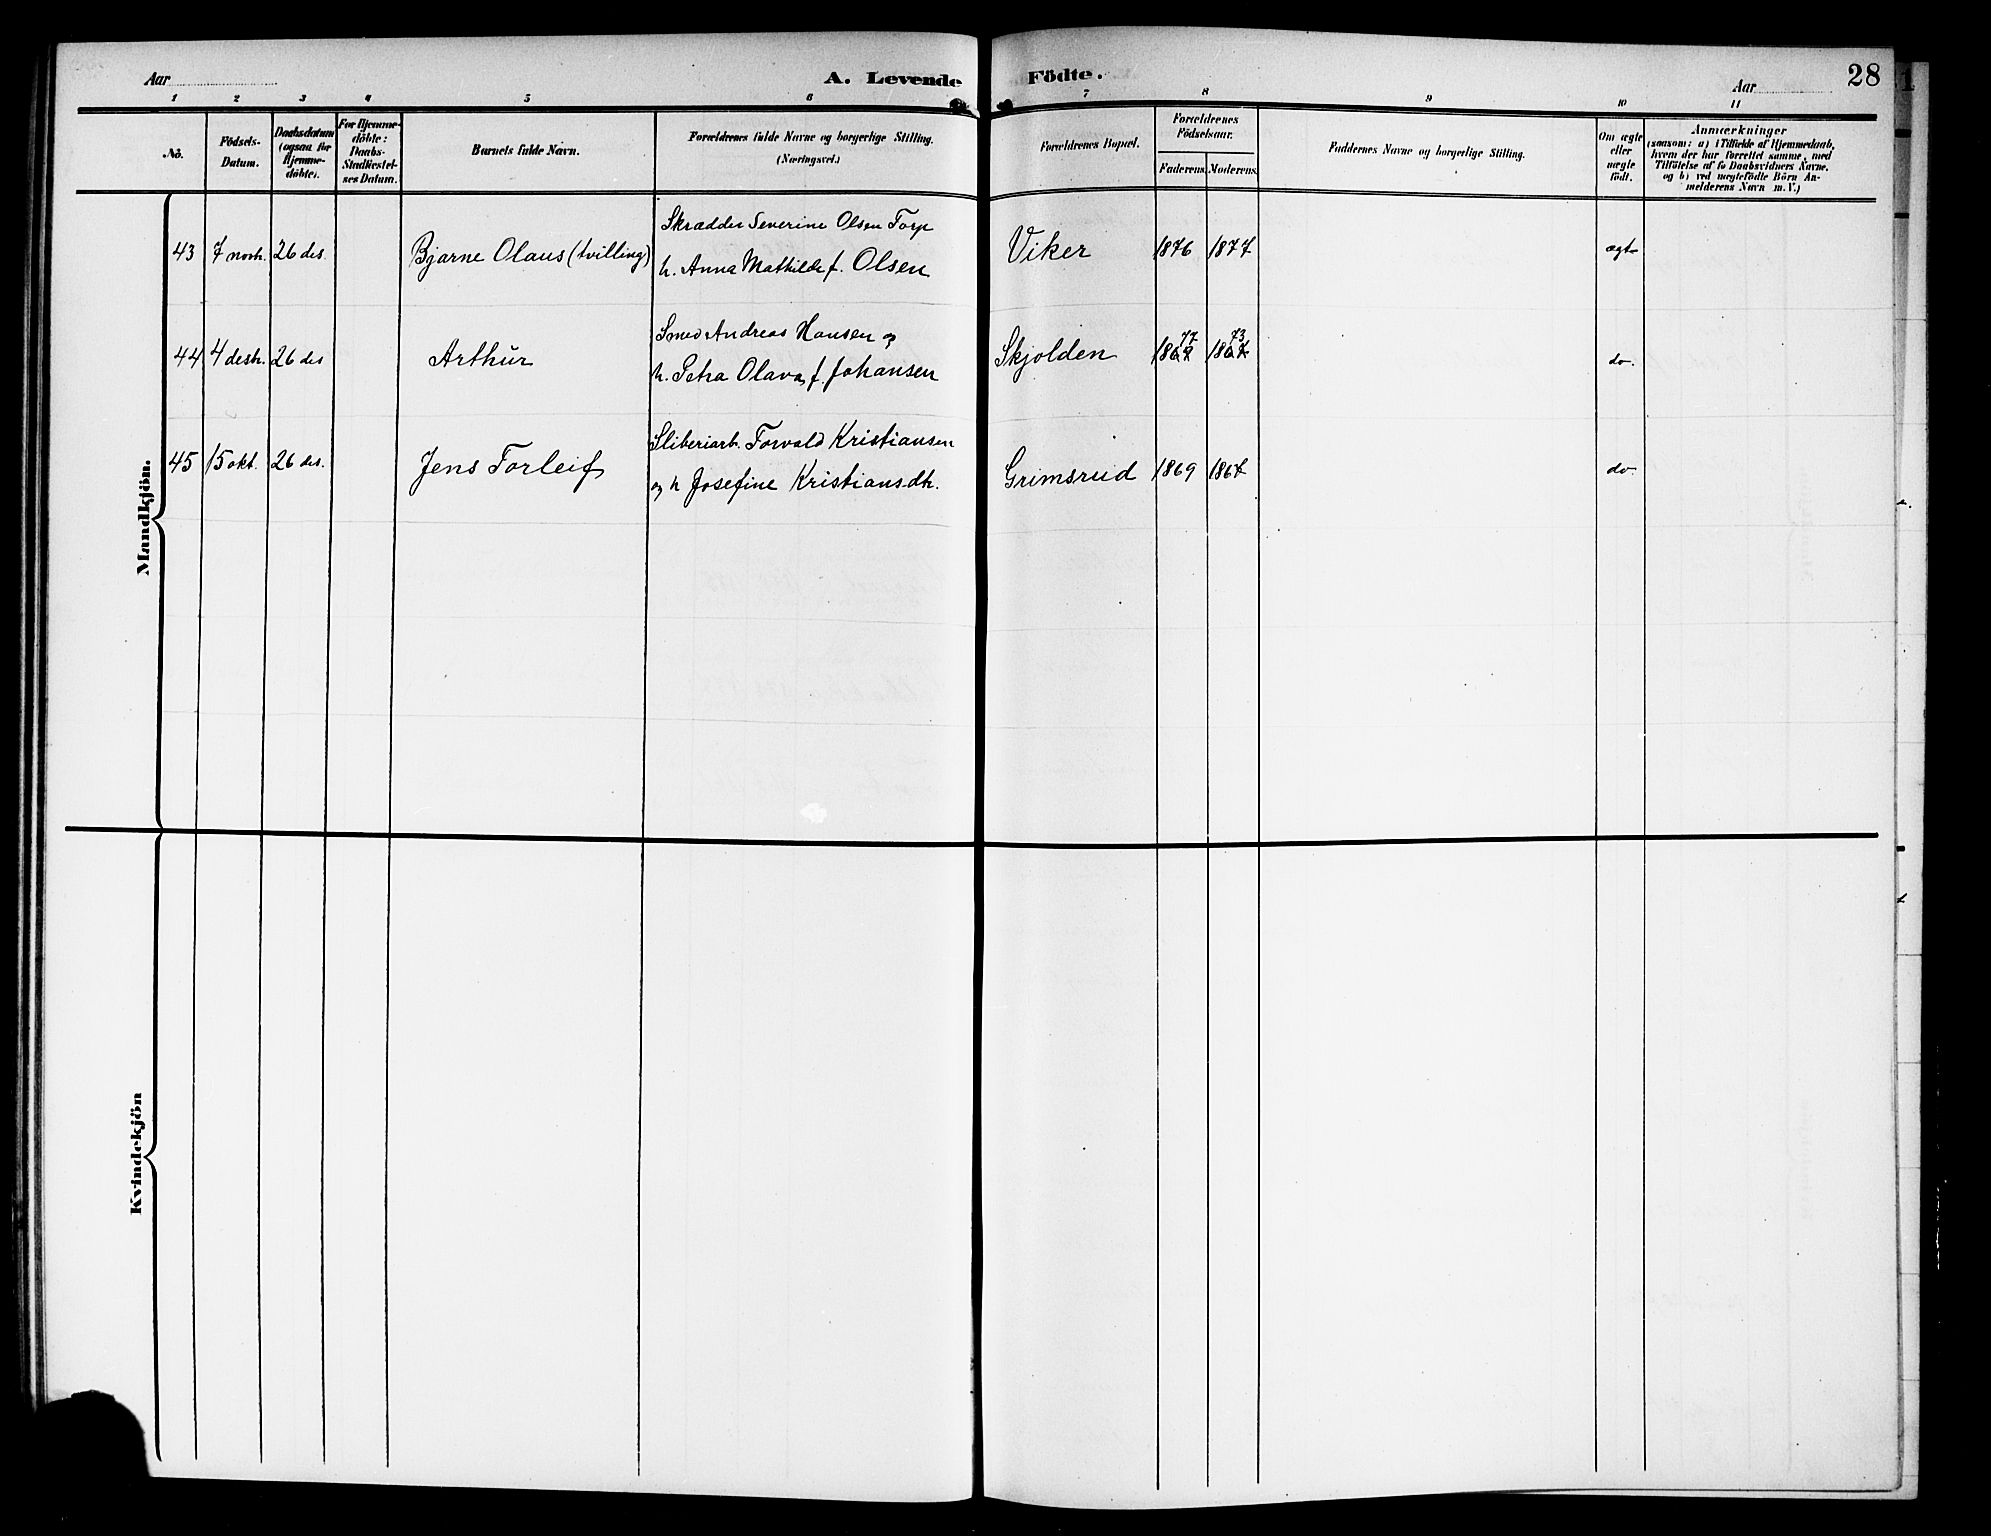 Aar
A. Levende Födte.
Aar
28
1 2 3 4 5 6 7 8 9 10 11
No.
Födsels-
Datum.
Daabsdatum
(ogsaa for
Hjemme-
döbte).
For Hjemme-
döbte:
Daabs-
Stadfæstel-
ses Datum.
Barnets fulde Navn.
Forældrenes fulde Navne og borgerlige Stilling.
(Næringsvei.)
Forældrenes Bopæl.
Forældrenes
Födselsaar.
Faderens. Moderens.
Faddernes Navne og borgerlige Stilling.
Om ægte
eller
uægte
födt.
Anmærkninger
(saasom: a) i Tilfælde af Hjemmedaab,
hvem der har forrettet samme, med
Tilföielse af to Daabsvidners Navne.
og b) ved uægtefödte Börn An-
melderens Navn m. V.)
Mandkjön.
43 7 novb. 26 des. Bjarne Olaus (tvilling)
Skrædder Severine Olsen Torp
h. Anna Mathilde f. Olsen
Viker 1876 1877 ægt
44 4 desb. 26 des Arthur
Smed Andreas Hansen og
h. Petra Olava f. Johansen
Skjolden 77 73 do.
45 15 okt. 26 des. Jens Torleif
Sliberiarb. Torvald Kristiansen
og h Josefine Kristiansdh.
Grimsrud 1869 1867 do
Kvindekjön